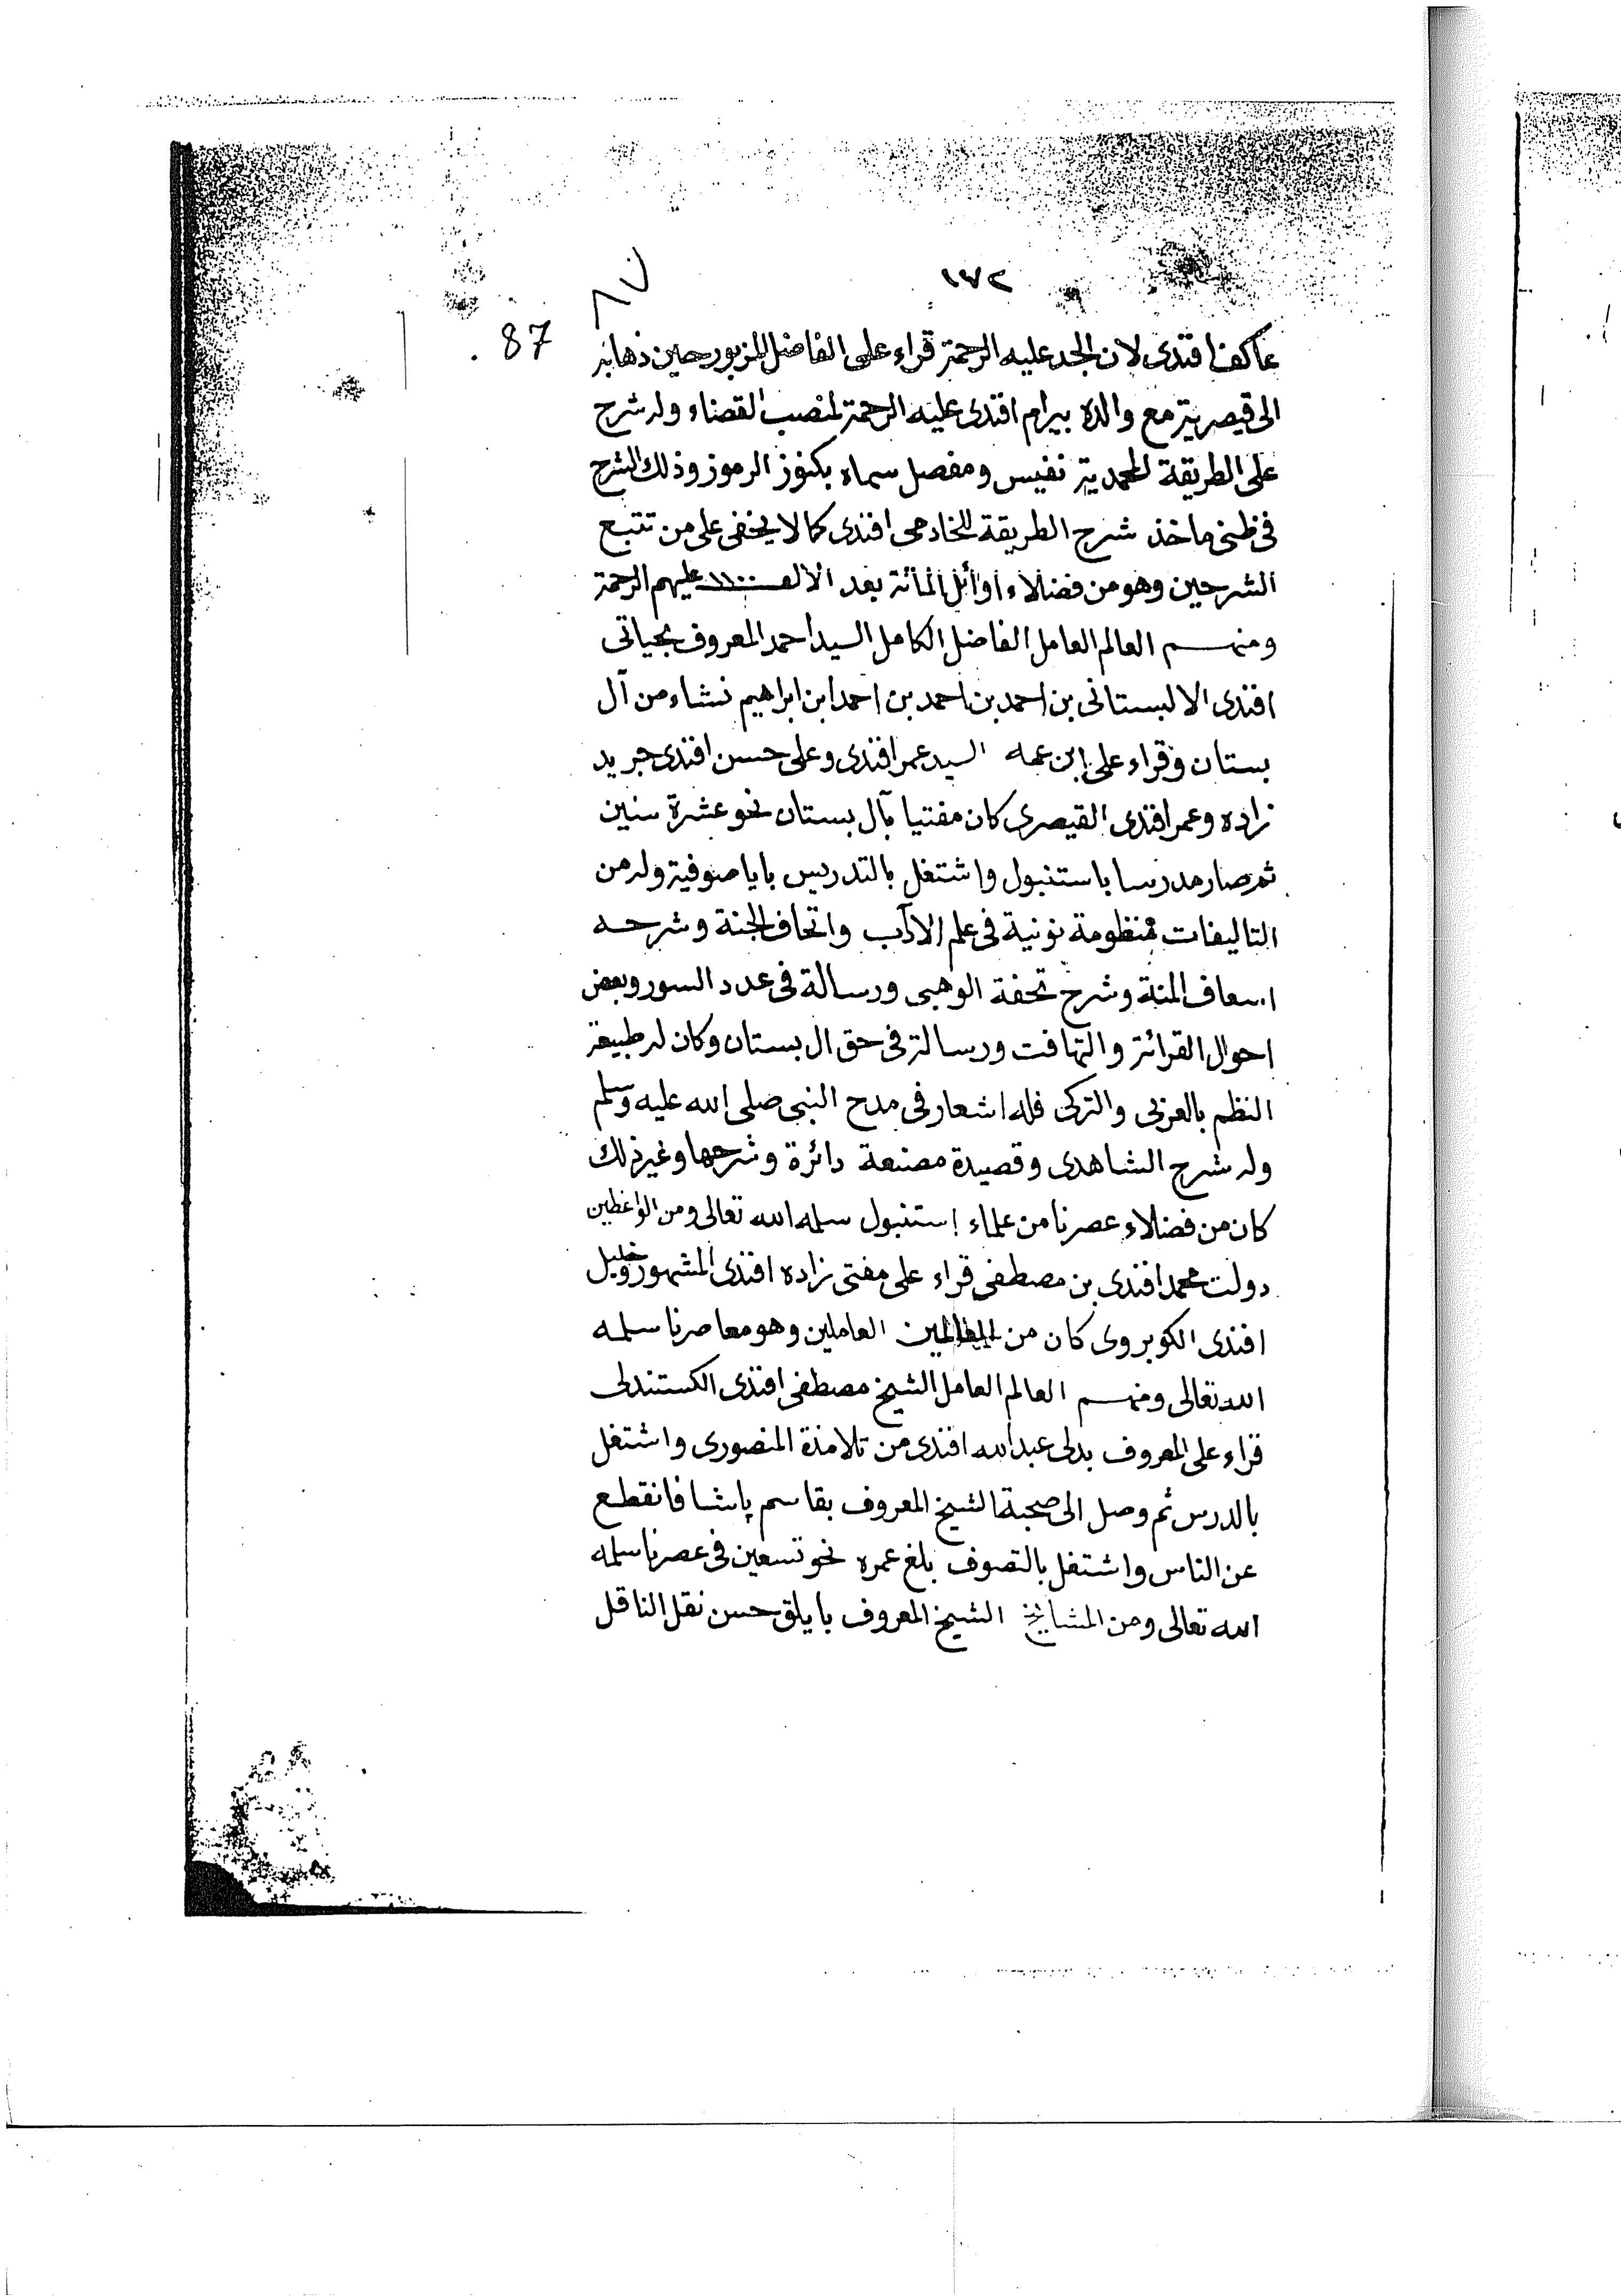 ١٧٢
87
عاكف افندى لان الجد عليه الرحمة قراء على الفاضل المزبور حين ذهابه
الى قيصرية مع والده بيرام افندى عليه الرحمة لمنصب القضاء وله شرح
على الطريقة المحمدية نفيس ومفصل سماه بكنوز الرموز وذلك الشرح
فى ظنى ماخذ شرح الطريقة للخادمى افندى كما لا يخفى على من تتبع
الشرحين وهو من فضلاء اوائل المائة بعد الالف ١١٠٠ عليهم الرحمة
ومنهم العالم العامل الفاضل الكامل السيد احمد المعروف بحياتى
افندى الالبستانى بن احمد بن احمد بن احمد ابن ابراهيم نشاء من آل
بستان وقراء على ابن عمه السيد عمر افندى وعلى حسن افندى جريد
زاده وعمر افندى القيصرى كان مفتيا بآل بستان نحو عشرة سنين
ثم صار مدرسا باستنبول واشتغل بالتدريس باياصوفية وله من
التاليفات منظومة نونية فى علم الآداب واتحاف الجنة وشرحه
اسعاف المنة وشرح تحفة الوهبى ورسالة فى عدد السور وبعض
احوال القرائة والتهافت ورسالة فى حق ال بستان وكان له طبيعة
النظم بالعربى والتركى فله اشعار فى مدح النبى صلى الله عليه وسلم
وله شرح الشاهدى وقصيدة مصنعة دائرة وشرحها وغير ذلك
كان من فضلاء عصرنا من علماء استنبول سلمه الله تعالى ومن الواعظين
دولت محمد افندى بن مصطفى قراء على مفتى زاده افندى المشهور وخليل
افندى الكوبروى كان من العالمين العاملين وهو معاصرنا سلمه
الله تعالى ومنهم العالم العامل الشيخ مصطفى افندى الكستندلى
قراء على المعروف بدلى عبدالله افندى من تلامذة المنصورى واشتغل
بالدرس ثم وصل الى صحبة الشيخ المعروف بقاسم پاشا فانقطع
عن الناس واشتغل بالتصوف بلغ عمره نحو تسعين فى عصرنا سلمه
الله تعالى ومن المشايخ الشيخ المعروف بايلق حسن نقل الناقل